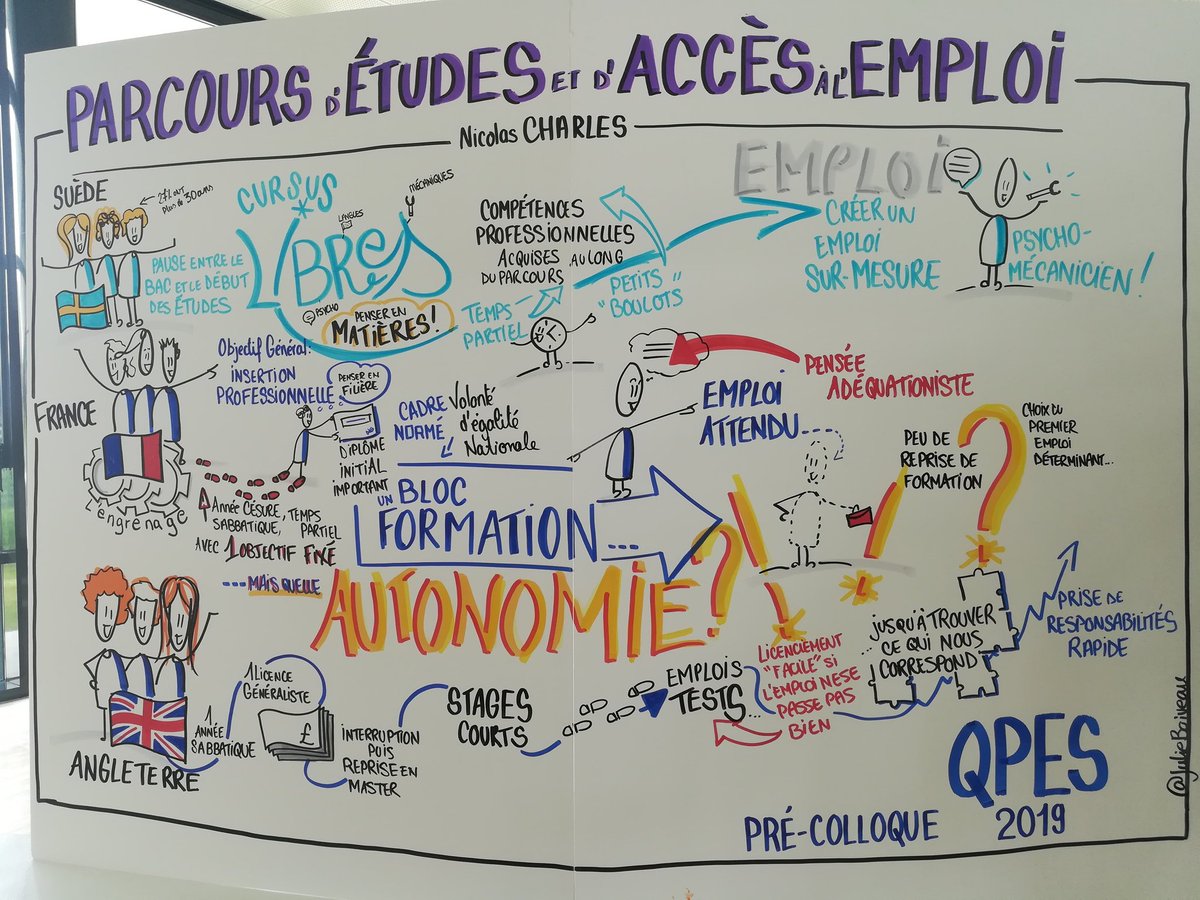 PARCOURS D'ÉTUDES ET D'ACCÈS À L'EMPLOI
Nicolas CHARLES
SUÈDE
27% ont
plus de 30 ans
PAUSE ENTRE LE
BAC ET LE DÉBUT
DES ÉTUDES
CURSUS
LIBRES
LANGUES
MÉCANIQUES
PSYCHO
PENSER EN
MATIÈRES!
COMPÉTENCES
PROFESSIONNELLES
ACQUISES AU LONG
DU PARCOURS
TEMPS
PARTIEL
PETITS
"BOULOTS"
EMPLOI
CRÉER UN
EMPLOI
SUR-MESURE
PSYCHO-
MÉCANICIEN!
FRANCE
L'engrenage
Objectif Général:
INSERTION
PROFESSIONNELLE
PENSER EN
FILIÈRE
DIPLÔME
INITIAL
IMPORTANT
CADRE
NORMÉ
Volonté
d'égalité
Nationale
Année CÉSURE, TEMPS
SABBATIQUE, PARTIEL
AVEC 1 OBJECTIF FIXÉ
UN BLOC
FORMATION...
PENSÉE
ADÉQUATIONISTE
EMPLOI
ATTENDU...
PEU DE
REPRISE DE
FORMATION
CHOIX DU
PREMIER
EMPLOI
DÉTERMINANT...
...MAIS QUELLE
AUTONOMIE?
ANGLETERRE
1 ANNÉE
SABBATIQUE
1 LICENCE
GÉNÉRALISTE
£
INTERRUPTION
PUIS
REPRISE EN
MASTER
STAGES
COURTS
EMPLOIS
TESTS...
LICENCIEMENT
"FACILE" SI
L'EMPLOI NE SE
PASSE PAS
BIEN
JUSQU'À TROUVER
CE QUI NOUS
CORRESPOND
PRISE DE
RESPONSABILITÉS
RAPIDE
QPES
2019
PRÉ-COLLOQUE